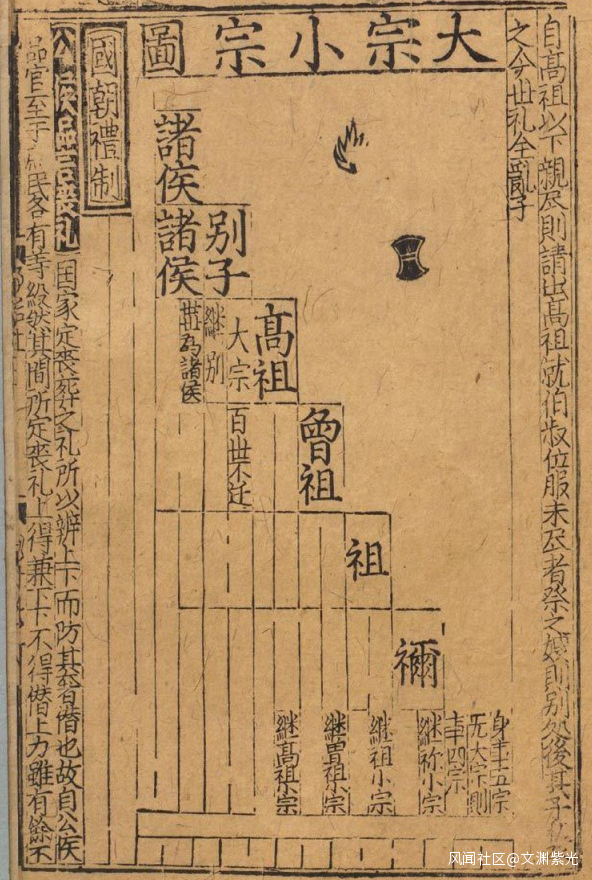 自高祖以下親尽則請出高祖就伯叔位服未尽者祭之嫂則別処後其子
之今世礼全亂了
大宗小宗圖
諸侯
別子
諸侯
高祖
大宗
継別
世為諸侯
曾祖
百世不迁
祖
禰
身事五宗
无大宗則
事四宗
継祢小宗
継祖小宗
継曽祖小宗
継高祖小宗
國朝禮制
公侯品官喪礼 国家定喪葬之礼所以辨上下而防其奢僭也故自公侯
品官至于民各有等級然其間所定喪礼上得兼下下不得僭上力雖有餘不
风闻社区@文渊紫光